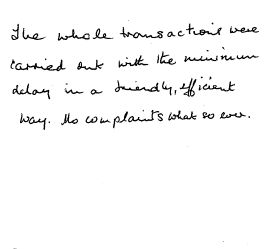 The whole transactions were
carried out with the minimum
delay in a friendly, efficient
way. No complaints what so ever.